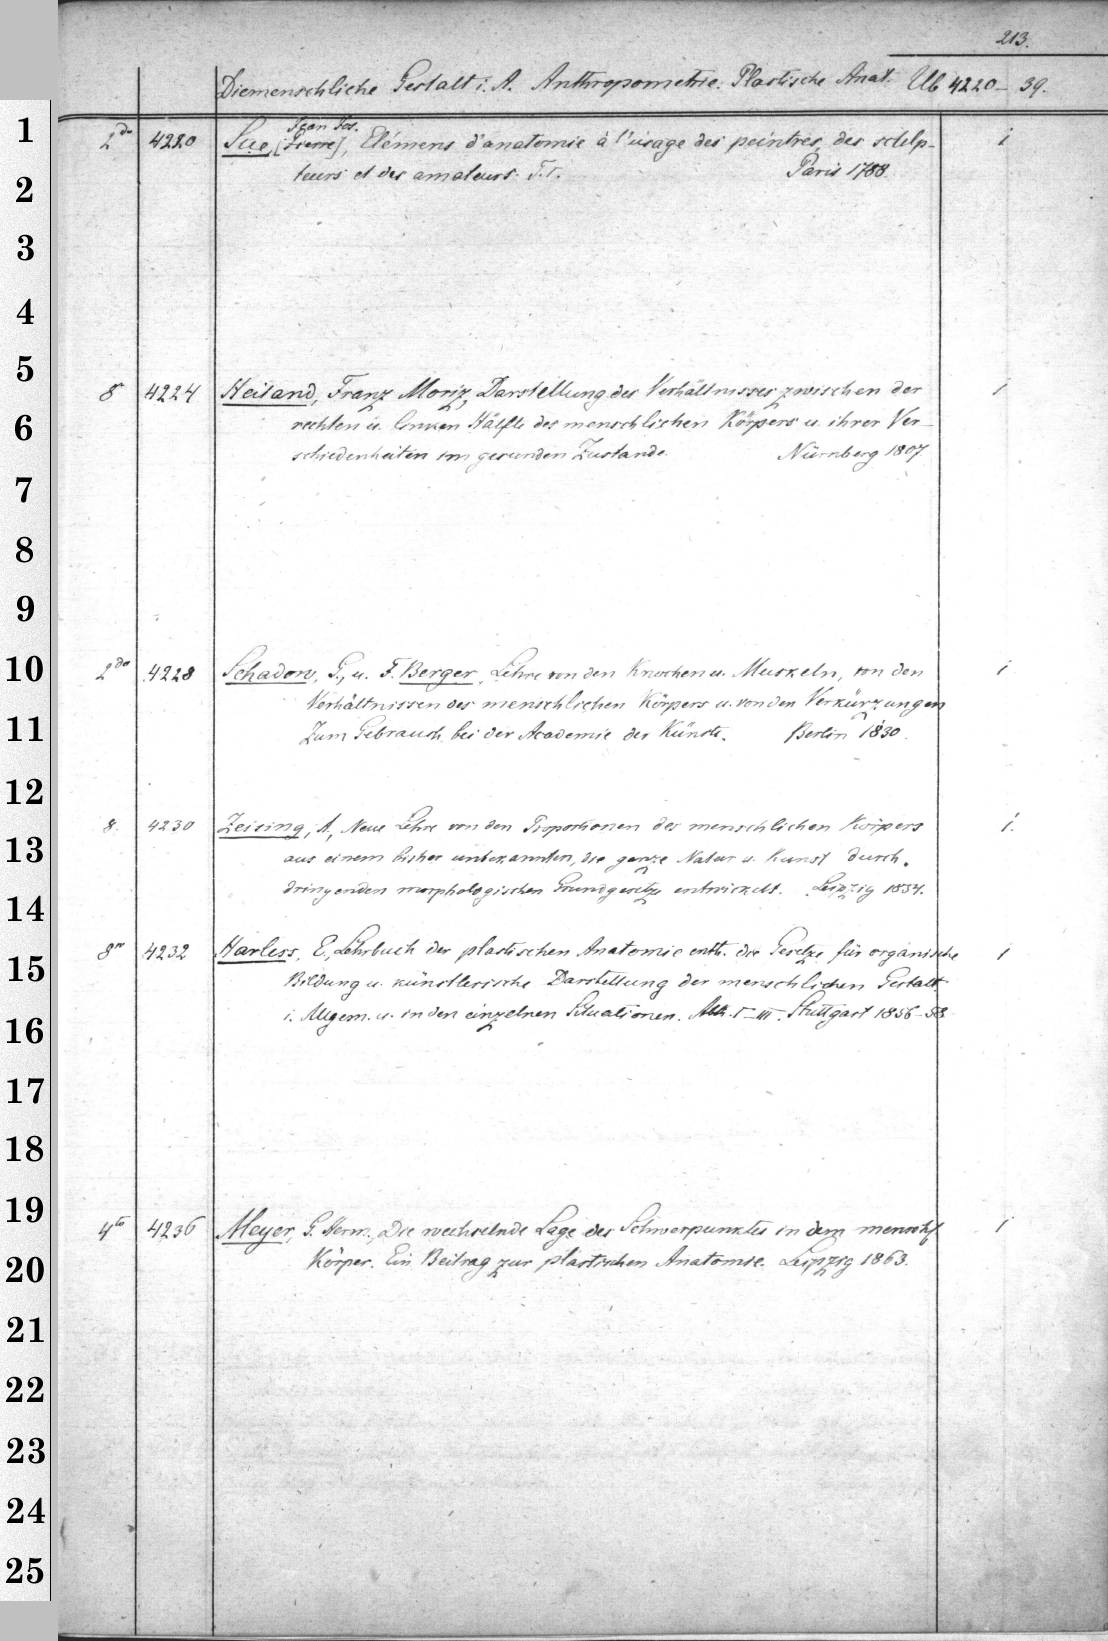 213.
Die menschliche Gestalt i. A. Anthropometrie. Plastische Anat. Ub 4220-39.
1
2do 4220 Sue, [Jean Jos.
Pierre], Elémens d'anatomie à l'usage des peintres, des sclelp- 1
2
teurs et des amateurs. T. I. Paris 1788.
3
4
5
8º 4224 Heiland, Franz Moriz, Darstellung des Verhältnisses zwischen der 1
6
rechten u. linken Hälfte des menschlichen Körpers u. ihrer Ver-
schiedenheiten im gesunden Zustande. Nürnberg 1807
7
8
9
10
2do 4228 Schadow, G., u. F. Berger, Lehre von den Knochen u. Muskeln, von den 1
Verhältnissen des menschlichen Körpers u. von den Verkürzungen
11
Zum Gebrauch bei der Academie der Künste. Berlin 1830.
12
8. 4230 Zeising, A., Neue Lehre von den Proportionen des menschlichen Körpers 1.
13
aus einem bisher unbekannten, die ganze Natur u. Kunst durch-
dringenden morphologischen Grundgesetze entwickelt. Leipzig 1854.
14
8º 4232 Harless, E., Lehrbuch der plastischen Anatomie enth. die Gesetze für organische 1
15
Bildung u. künstlerische Darstellung der menschlichen Gestalt
i. Allgem. u. in den einzelnen Situationen. Abth. I-III. Stuttgart 1856-58
16
17
18
19
4to 4236 Meyer, G. Herm., Die wechselnde Lage des Schwerpunktes in dem menschl. 1
20
Körper. Ein Beitrag zur plastischen Anatomie. Leipzig 1863.
21
22
23
24
25